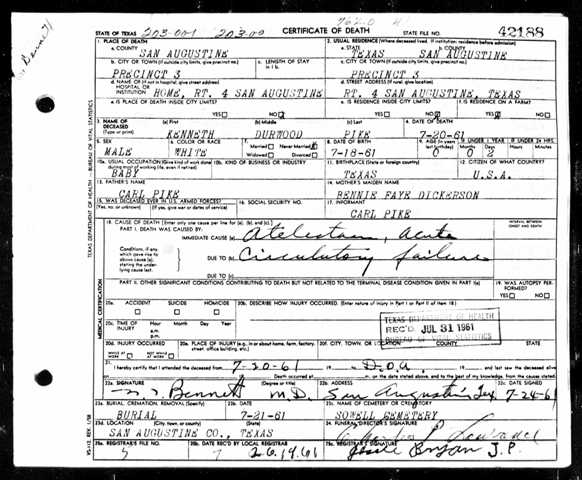 7620 4
STATE OF TEXAS 203-001 203-00 CERTIFICATE OF DEATH STATE FILE NO. 42188
Bennett
1. PLACE OF DEATH
a. COUNTY
SAN AUGUSTINE
2. USUAL RESIDENCE (Where deceased lived. If institution: residence before admission)
a. STATE b. COUNTY
TEXAS SAN AUGUSTINE
b. CITY OR TOWN (If outside city limits, give precinct no.) c. LENGTH OF STAY
PRECINCT 3
c. CITY OR TOWN (If outside city limits, give precinct no.)
PRECINCT 3
d. NAME OF (If not in hospital, give street address)
HOSPITAL OR
INSTITUTION HOME, RT. 4 SAN AUGUSTINE
d. STREET ADDRESS (If rural, give location)
RT. 4 SAN AUGUSTINE, TEXAS
e. IS PLACE OF DEATH INSIDE CITY LIMITS?
YES NO
e. IS RESIDENCE INSIDE CITY LIMITS? f. IS RESIDENCE ON A FARM?
YES NO YES NO
3. NAME OF DECEASED (Type or print) (a) First (b) Middle (c) Last 4. DATE OF DEATH
KENNETH DURWOOD PIKE 7-20-61
5. SEX 6. COLOR OR RACE 7. Married Never Married Widowed Divorced 8. DATE OF BIRTH 9. AGE
MALE WHITE 7-18-61 0 0 2
10a. USUAL OCCUPATION 10b. KIND OF BUSINESS OR INDUSTRY 11. BIRTHPLACE (State or foreign country) 12. CITIZEN OF WHAT COUNTRY?
BABY TEXAS U.S.A.
13. FATHER'S NAME 14. MOTHER'S MAIDEN NAME
CARL PIKE BENNIE FAYE DICKERSON
15. WAS DECEASED EVER IN U.S. ARMED FORCES? 16. SOCIAL SECURITY NO. 17. INFORMANT
CARL PIKE
18. CAUSE OF DEATH [Enter only one cause per line for (a), (b), and (c).]
PART I. DEATH WAS CAUSED BY:
IMMEDIATE CAUSE (a) Acute
DUE TO (b) Circulatory failure
DUE TO (c)
PART II. OTHER SIGNIFICANT CONDITIONS CONTRIBUTING TO DEATH BUT NOT RELATED TO THE TERMINAL DISEASE CONDITION GIVEN IN PART I(a) 19. WAS AUTOPSY PERFORMED?
YES NO
20a. ACCIDENT SUICIDE HOMICIDE 20b. DESCRIBE HOW INJURY OCCURRED. (Enter nature of injury in Part I or Part II of item 18)
20c. TIME OF INJURY Hour Month Day Year
TEXAS DEPARTMENT OF HEALTH
REC'D JUL 31 1961
BUREAU OF VITAL STATISTICS
20d. INJURY OCCURRED 20e. PLACE OF INJURY 20f. CITY, TOWN, OR LOCATION COUNTY STATE
21. I hereby certify that I attended the deceased from 7-20-61 D.O.A.
22a. SIGNATURE (Degree or title) 22b. ADDRESS 22c. DATE SIGNED
Bennett M.D. San Augustine Tex 7-24-61
23a. BURIAL, CREMATION, REMOVAL (Specify) 23b. DATE 23c. NAME OF CEMETERY OR CREMATORY
BURIAL 7-21-61 SOWELL CEMETERY
23d. LOCATION (City, town, or county) (State) 24. FUNERAL DIRECTOR'S SIGNATURE
SAN AUGUSTINE CO., TEXAS
25a. REGISTRAR'S FILE NO. 25b. DATE REC'D BY LOCAL REGISTRAR 25c. REGISTRAR'S SIGNATURE
5 7 26 1961 Bryan J.P.
TEXAS DEPARTMENT OF HEALTH - BUREAU OF VITAL STATISTICS
MEDICAL CERTIFICATION